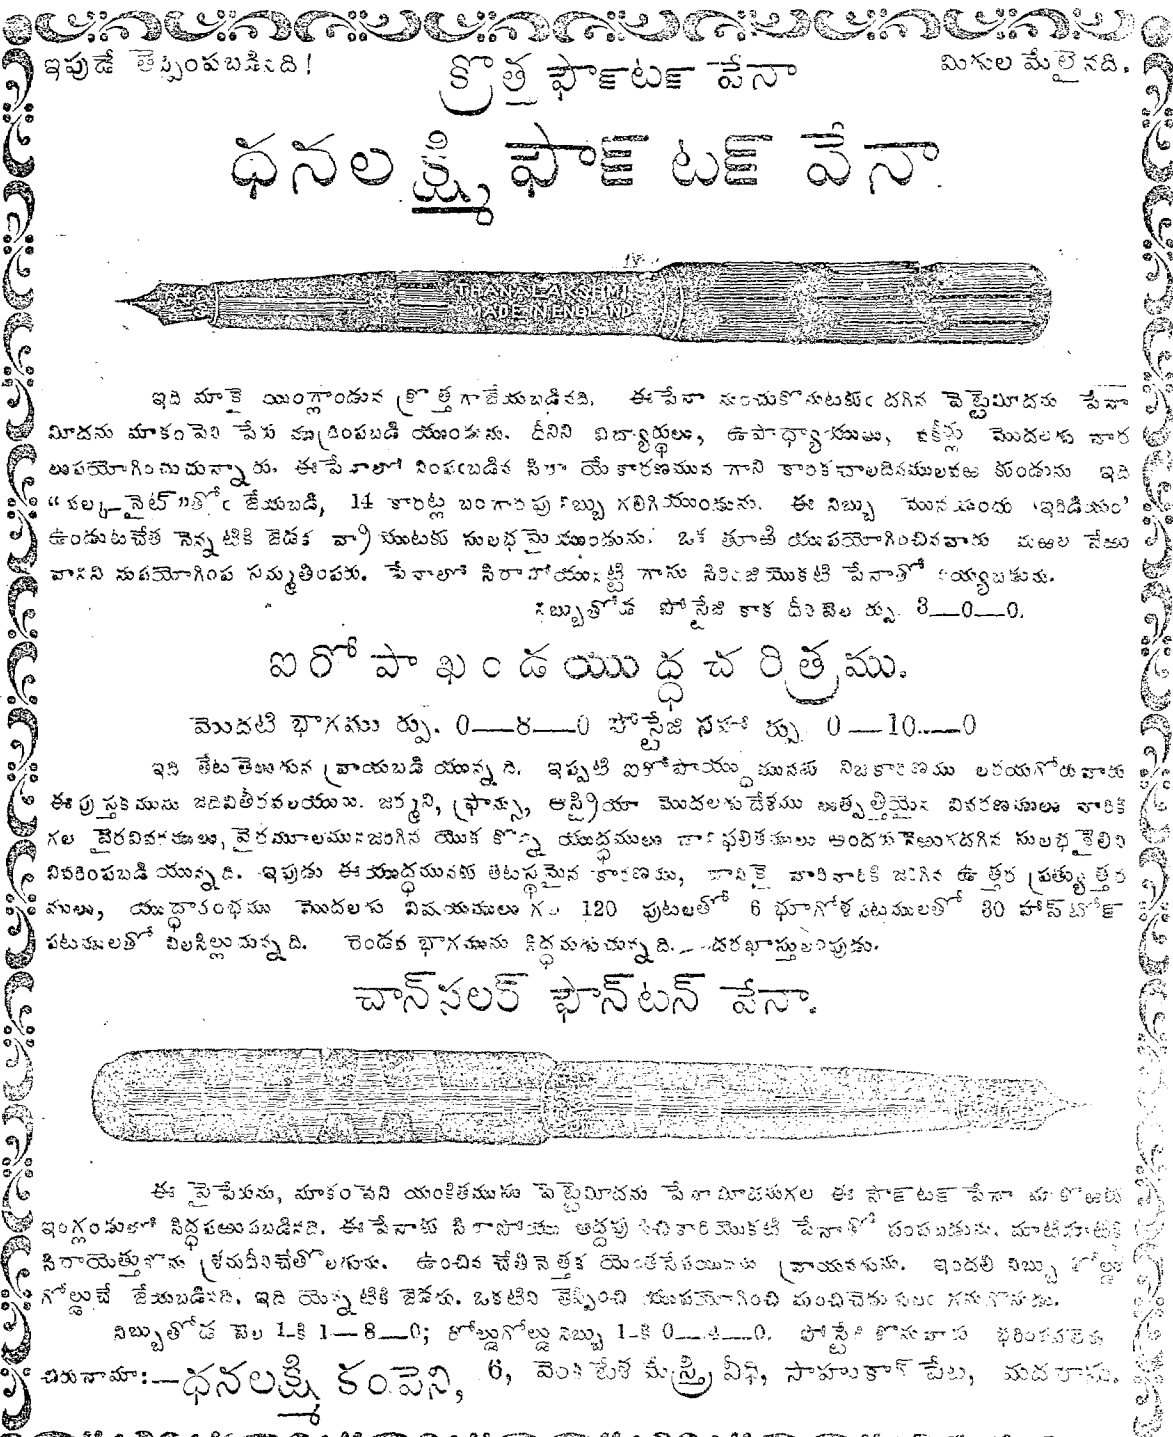 ఇపుడే తెప్పింపబడినది!
క్రొత్త ఫౌంటన్ పేనా
మిగుల మేలైనది.
ధనలక్ష్మి ఫౌంటన్ పేనా
THANALAKSHMI
MADE IN ENGLAND
ఇది మాకై యింగ్లాండున క్రొత్తగాజేయబడినది. ఈపేనా నుంచుకొనుటకుఁ దగిన పెట్టెమీదను పేనా
మీదను మాకంపెని పేరు ముద్రింపబడి యుండును. దీనిని విద్యార్థులు, ఉపాధ్యాయులు, వకీళ్లు మొదలగు వార
లుపయోగించుచున్నారు. ఈపేనాలో నింపఁబడిన సిరా యే కారణమున గాని కారిక చాలదినములవఱ కుండును ఇది
“వల్కనైట్”తోఁ జేయబడి, 14 కారట్ల బంగారపు నిబ్బు గలిగియుండును. ఈ నిబ్బు మొనయందు ‘ఇరిడియం’
ఉండుటచేత నెన్నటికి జెడక వ్రాయుటకు సులభమైయుండును. ఒక తూరి యుపయోగించినవారు మఱల వేఱు
వానిని నుపయోగింప సమ్మతింపరు. పేనాలో సిరాపోయుటట్టి గాసు సిరింజి యొకటి పేనాతో నియ్యబడును.
నిబ్బుతోడ పోస్టేజి కాక దీని వెల ర్పు. 3—0—0.
ఐరోపాఖండయుద్ధచరిత్రము.
మొదటి భాగము ర్పు. 0—8—0 పోస్టేజి సహా ర్పు 0—10—0
ఇది తేటతెలుగున వ్రాయబడి యున్నది. ఇప్పటి ఐరోపాయుద్ధమునకు నిజకారణము లరయగోరువారు
ఈపుస్తకమును జదివితీరవలయును. జర్మని, ఫ్రాన్సు, ఆస్ట్రియా మొదలగుదేశము లుత్పత్తియైన వివరణములు వారికి
గల వైరవివరములు, వైరమూలమునజరిగిన యొక కొన్ని యుద్ధములు వాని ఫలితములు అందరు తెలియదగిన సులభశైలిని
వివరింపబడి యున్నది. ఇపుడు ఈయుద్ధమునకు తటస్థమైన కారణము, దానికై వారివారికి జరిగిన ఉత్తర ప్రత్యుత్తర
ములు, యుద్ధారంభము మొదలగు విషయములు గల 120 పుటలతో 6 భూగోళపటములతో 30 హాఫ్‌టోన్
పటములతో విలసిల్లుచున్నది. రెండవ భాగమును సిద్ధమగుచున్నది. దరఖాస్తులంపుడు.
చాన్‌సలర్ ఫౌన్‌టన్ పేనా.
ఈ పైపేరును, మాకంపెని యంకితమును పెట్టెమీదను పేనామీదనుగల ఈ ఫౌంటన్ పేనా మాకొఱకు
ఇంగ్లండులో సిద్ధపఱుపబడినది. ఈపేనాకు సిరాపోయు అద్దపు పిచికారి యొకటి పేనాతో పంపబడును. మాటిమాటికి
సిరాయెత్తుకొను శ్రమదీనిచేతొలగును. ఉంచిన చేతినెత్తక యెంతసేపయినను వ్రాయవచ్చును. ఇందలి నిబ్బు రోల్డు
గోల్డుచే జేయబడినది. ఇది యెన్నటికి జెడదు. ఒకటిని తెప్పించి యుపయోగించి మంచిచెడుగులఁ గనుగొనుడు.
నిబ్బుతోడ వెల 1-కి 1—8—0; రోల్డుగోల్డు నిబ్బు 1-కి 0—4—0. పోస్టేజి కొనువారు భరింపవలెను
చిరునామా:—ధనలక్ష్మి కంపెని, 6, వెంకటేశ మేస్త్రి వీధి, సాహుకార్ పేట, మదరాసు.